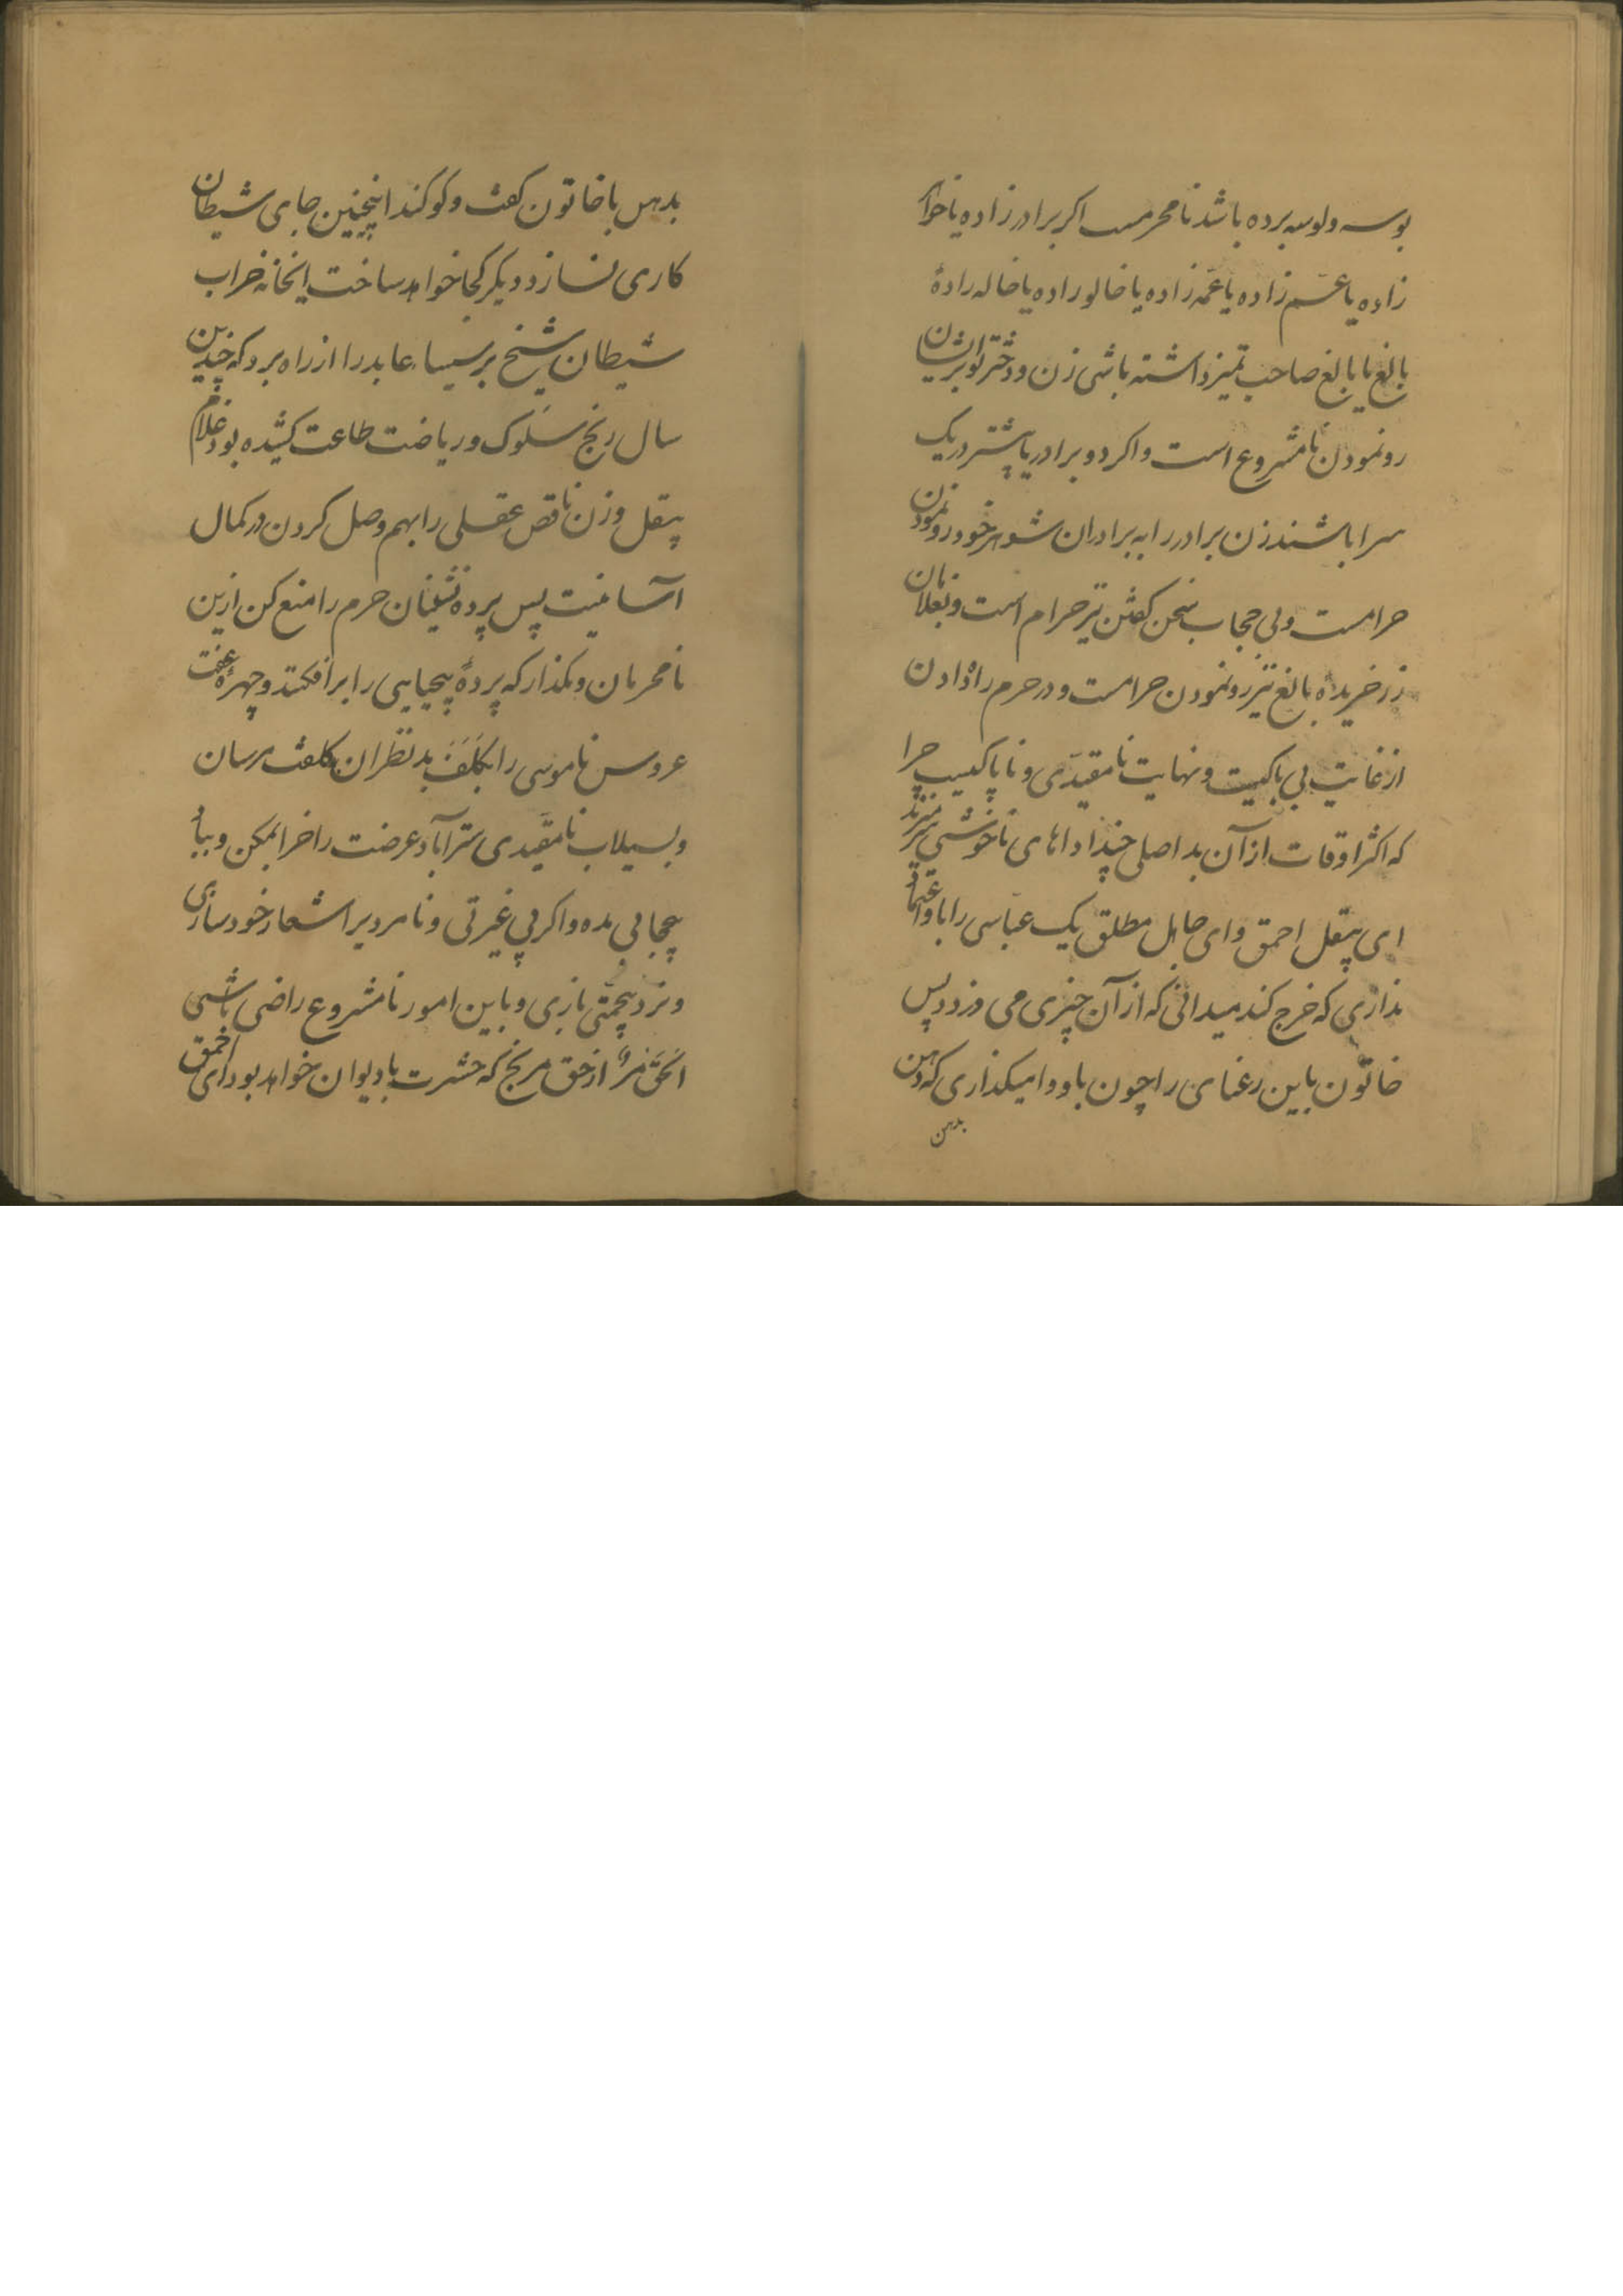 بوسه و لوسه برده باشد نامحرمست اکر برادر زاده یا خواهر
زاده یا عم زاده یا عمه زاده یا خالو زاده یا خاله زادهٔ
بالغ یا نابالغ صاحب تمیز داشته باشی زن و دختر تو بر ایشان
رو نمودن نامشروع است و اکر دو برادر یا پیشتر در یک
سرا باشند زن برادر را به برادران شوهر خود رو نمودن
حرامست و بی حجاب سخن کفتن نیز حرام است و بغلامان
زر خریده بالغ نیز رو نمودن حرامست و در حرم راه دادن
از غایت بی باکیست و نهایت نامقیدی و ناپاکیست چرا
که اکثر اوقات از آن بد اصلی چند اداهای ناخوشی سر میزند
ای بیعقل احمق و ای جاهل مطلق یک عباسی را با و اعتماد
نداری که خرج کند میدانی که از آن چیزی می دزدد پس
خاتون باین رعنای را چون باو وا میکذاری که دهن
بدهن
بدهن با خاتون کفت و کو کند اینچنین جای شیطان
کاری نسازد دیکر کجا خواهد ساخت اینخانه خراب
شیطان شیخ برسیساء عابد را از راه برد که چندین
سال رنج سلوک و ریاضت طاعت کشیده بود غلام
بیعقل و زن ناقص عقلی را بهم وصل کردن در کمال
آسانیست پس پرده نشینان حرم را منع کن ازین
نامحرمان و مکذار که پردهٔ بیحیایی را برافکنند و چهرهٔ عفت
عروس ناموسی را بکلف بد نظران بکلفت مرسان
و بسیلاب نامقیدی ستر آباد عرضت را خراب مکن و بباد
بیحجابی مده و اکر بی غیرتی و نامردیرا شعار خود سازی
و نرد بیحمیتی بازی و باین امور نامشروع راضی باشی
الحق مر از حق مرنج که حشرت با دیوان خواهد بود ای احمق